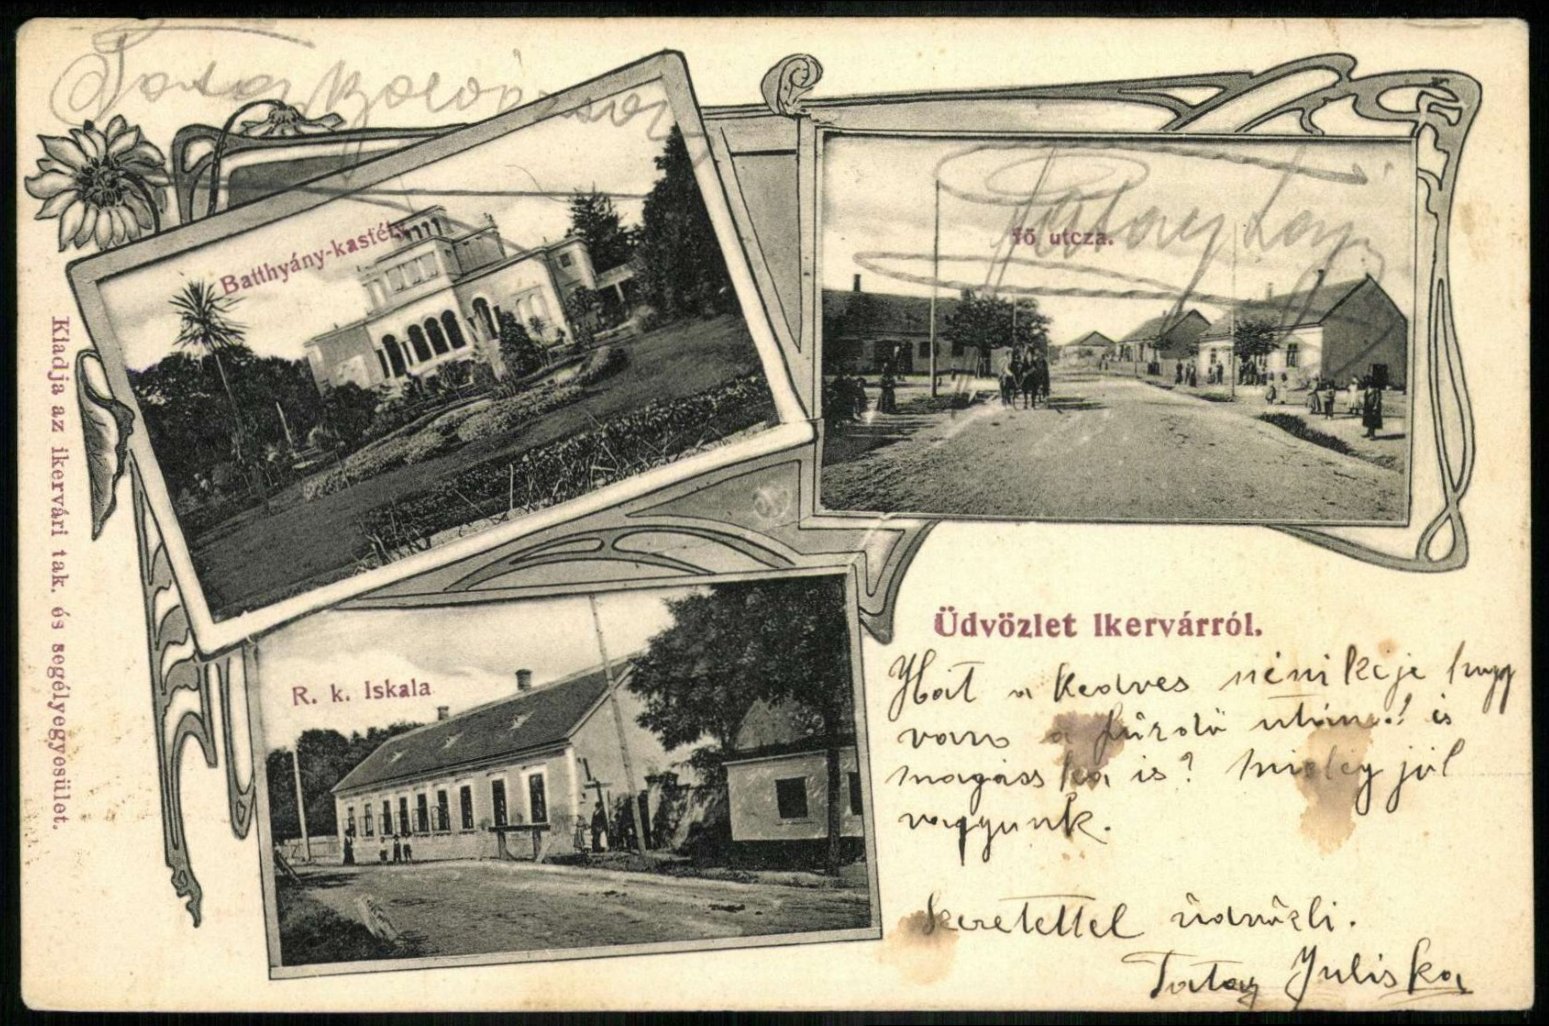 Batthyány-kastély.
fő utcza.
R. k. Iskala
Kiadja az ikervári tak. és segélyegyesület.
Üdvözlet Ikervárról.
Hát a kedves nénikéje hogy
van a fürdő után? és
magácska is? mi elég jól
vagyunk.
Szeretettel üdvözli.
Tatay Juliska